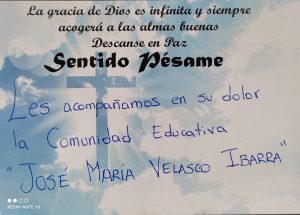 La gracia de Dios es infinita y siempre
acogerá a las almas buenas
Descanse en Paz
Sentido Pésame
Les acompañamos en su dolor
la Comunidad Educativa
"José María Velasco Ibarra"
REDMI NOTE 13